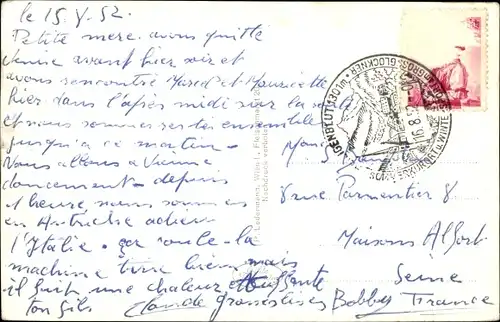 le 15.V.52.
Petite mere avons quitté
Venise avant hier soir et
avons rencontré Marcel et Mauricette
hier dans l'après midi sur la route
et nous sommes restés ensemble
jusqu'à ce matin-
Nous allons a Vienne
doucement- depuis
1 heure nous sommes
en Autriche adieu
l'Italie- ça roule- la
machine tire bien mais
il fait une chaleur étouffante
ton fils Claude grosses bises Bobby
8 rue Parmentier 8
Maisons Alfort
Seine
France
HEILIGENBLUT 1301 m
GROSSGLOCKNER
16.8.52
Ledermann, Wien I.,